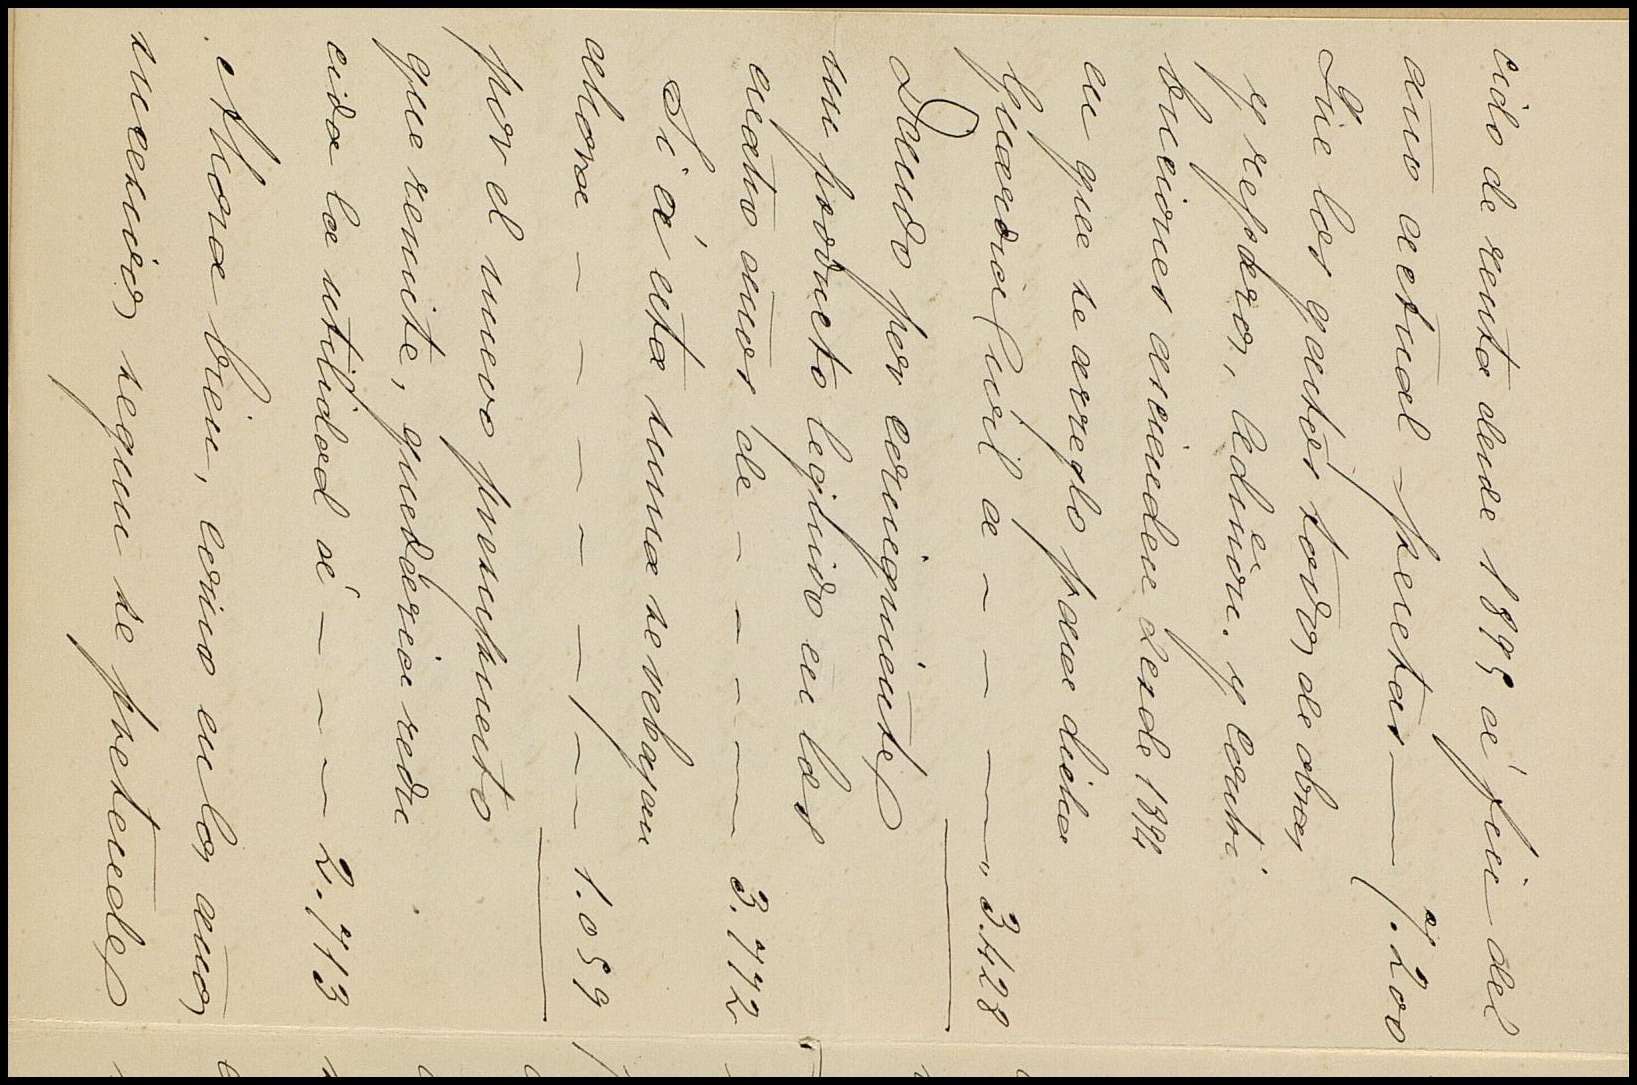 cido de renta desde 1895 á fin del
año actual pesetas — 7.200
Que los gastos todos de obras
y reparos, admón. y contri
buciones ascienden desde 1894
en que se arreglo para dicha
Guardia Civil a - - - — „ 3.428
Dando por consiguiente
un producto legtuido en los
cuatro años de - - - - — 3.772
Si á esta suma se rebajan
ahora - - - - - - - - 1.059
por el nuevo presupuesto
que remite, quedaria redu
cida la utilidad á - - - - 2.713
Ahora bien, como en los años
sucesivos segun se pretende